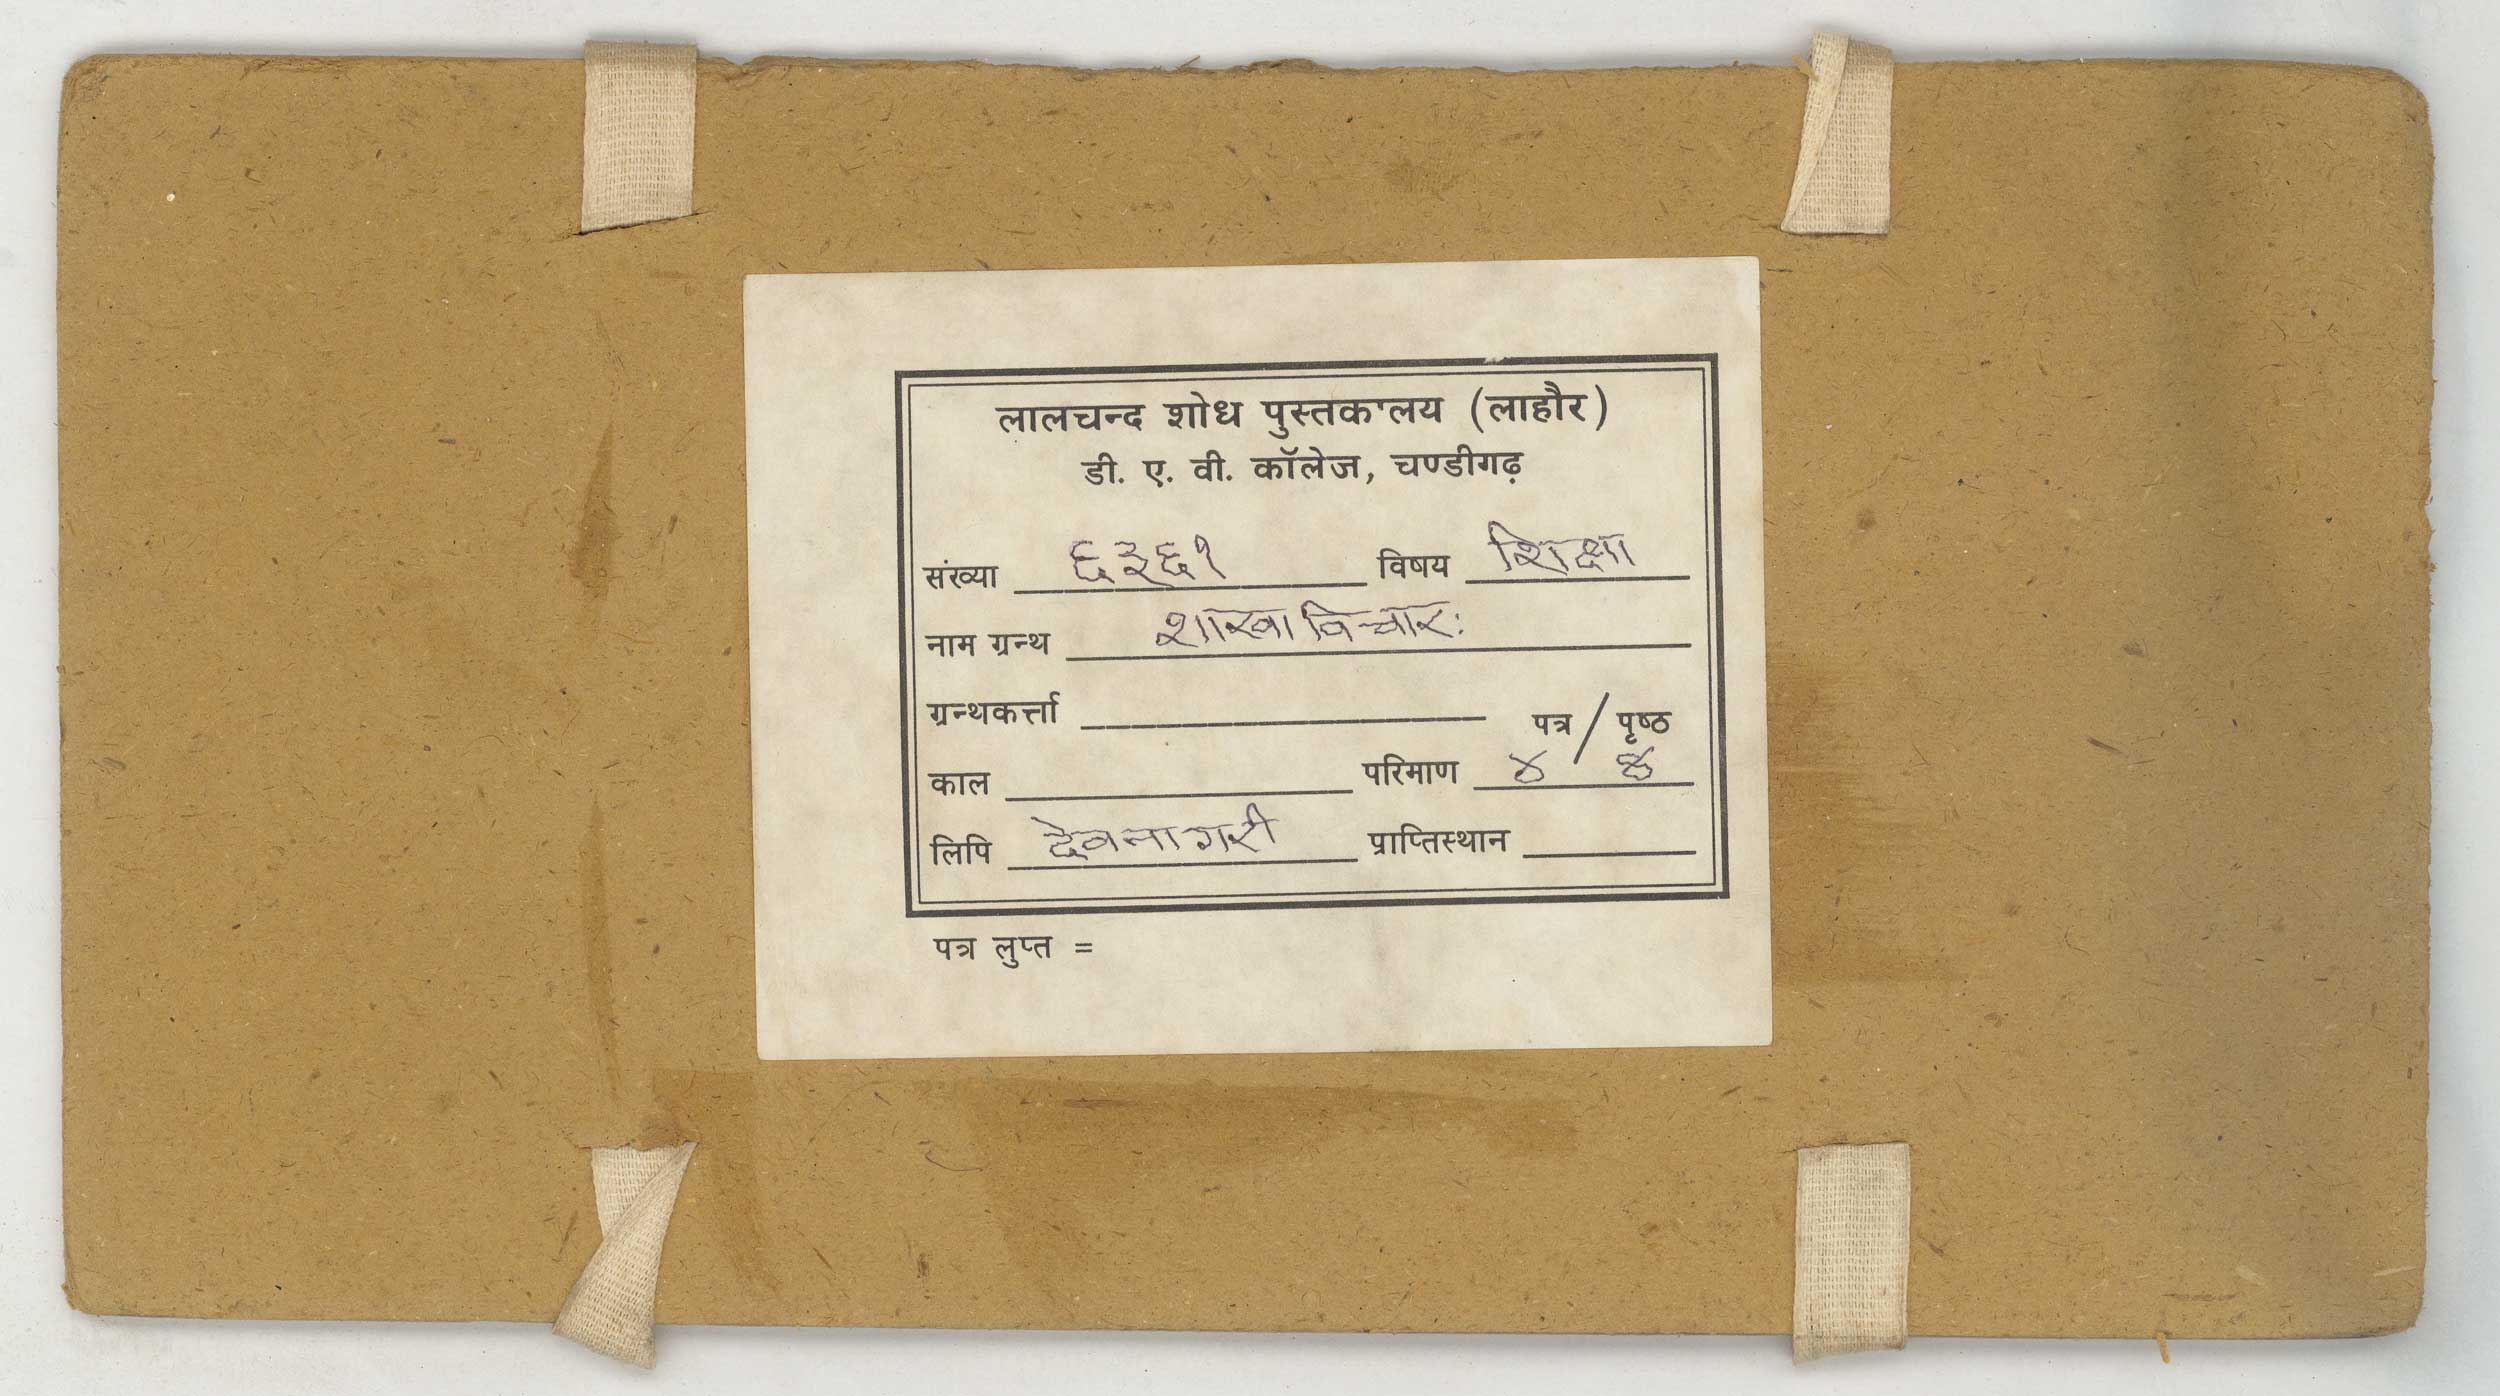 लालचन्द शोध पुस्तकालय (लाहौर)
डी. ए. वी. कॉलेज, चण्डीगढ़
संख्या ६३६१ विषय शिक्षा
नाम ग्रन्थ शाखाविचारः
ग्रन्थकर्त्ता
पत्र / पृष्ठ
काल परिमाण ४
लिपि देवनागरी प्राप्तिस्थान
पत्र लुप्त =